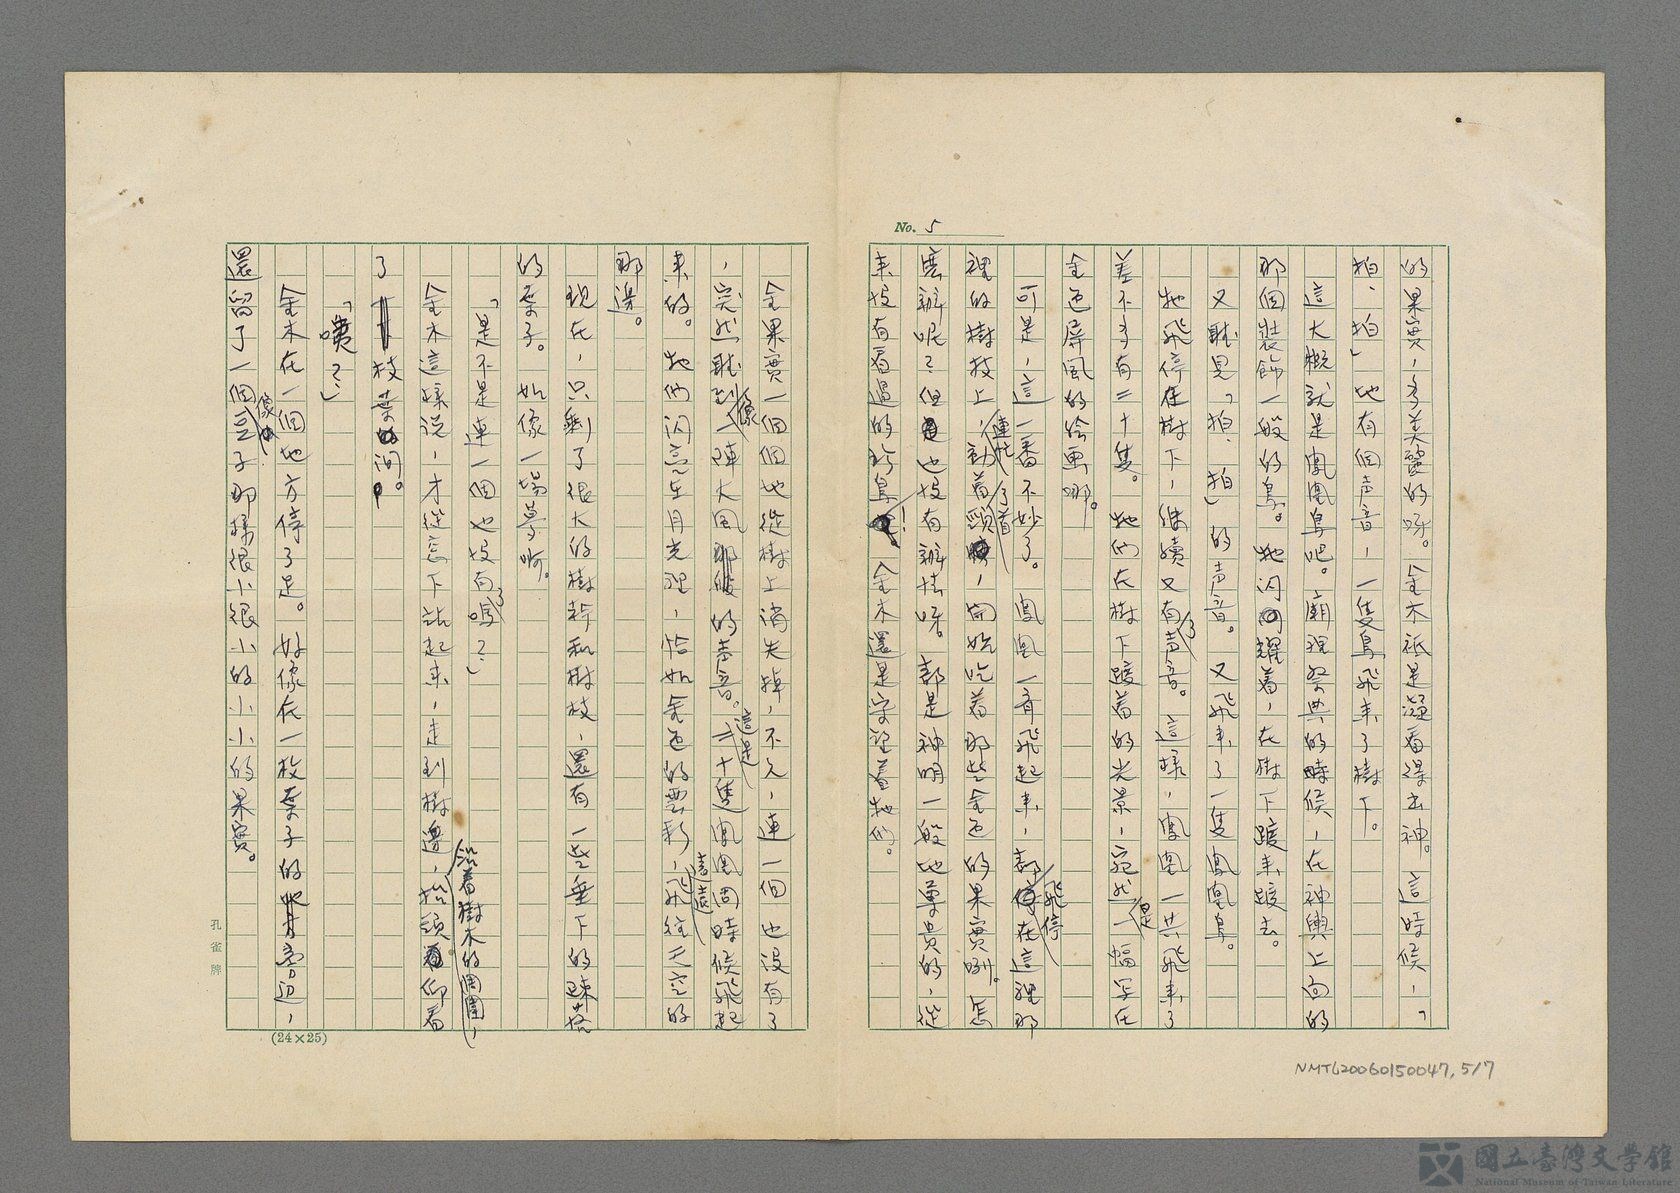 No. 5
的果實,多美麗的呀。金木祇是凝看得出神。這時候,「
拍、拍」地有個声音,一隻鳥飛来了樹下。
這大概就是鳳凰鳥吧。廟裡祭典的時候,在神輿上向的
那個裝飾一般的鳥。牠閃耀着,在樹下踱来踱去。
又聽見「拍、拍」的声音。又飛来了一隻鳳凰鳥。
牠飛停在樹下,継續又有了声音。這樣,鳳凰一共飛来了
差不多有二十隻。牠們在樹下踱着的光景,宛然是一幅写在
金色屏風的絵画哪。
可是,這一番不妙了。鳳凰一斉飛起来,都飛停在這裡那
裡的樹枝上,連忙動着了頸首,開始吃着那些金色的果實咧。怎
麼辦呢?但也没有辦法呀。都是神明一般地尊貴的,従
来没有看過的鳥!金木還是守望着牠们。
金果實一個個地從樹上消失掉,不久,連一個也没有了
,突然聽到像一陣大風的声音。這是二十隻鳳凰同時候飛起
来的。牠們閃亮在月光裡,恰如金色的雲彩,飛往遠遠天空的
那邊。
現在,只剩了很大的樹幹和樹枝,還有一些垂下的疎落
的葉子。好像一場夢啊。
「是不是連一個也没有了嗎?」
金木這樣說,才從窓下站起来,走到樹邊,沿着樹木的周圍,抬頭仰着
了枝葉間。
「噗?」
金木在一個地方停了足。好像在一枚葉子的旁边,
還留了一個像豆子那樣很小很小的小小的果實。
孔雀牌
(24×25)
NMTL20060150047, 5/7
國立臺灣文學館
National Museum of Taiwan Literature